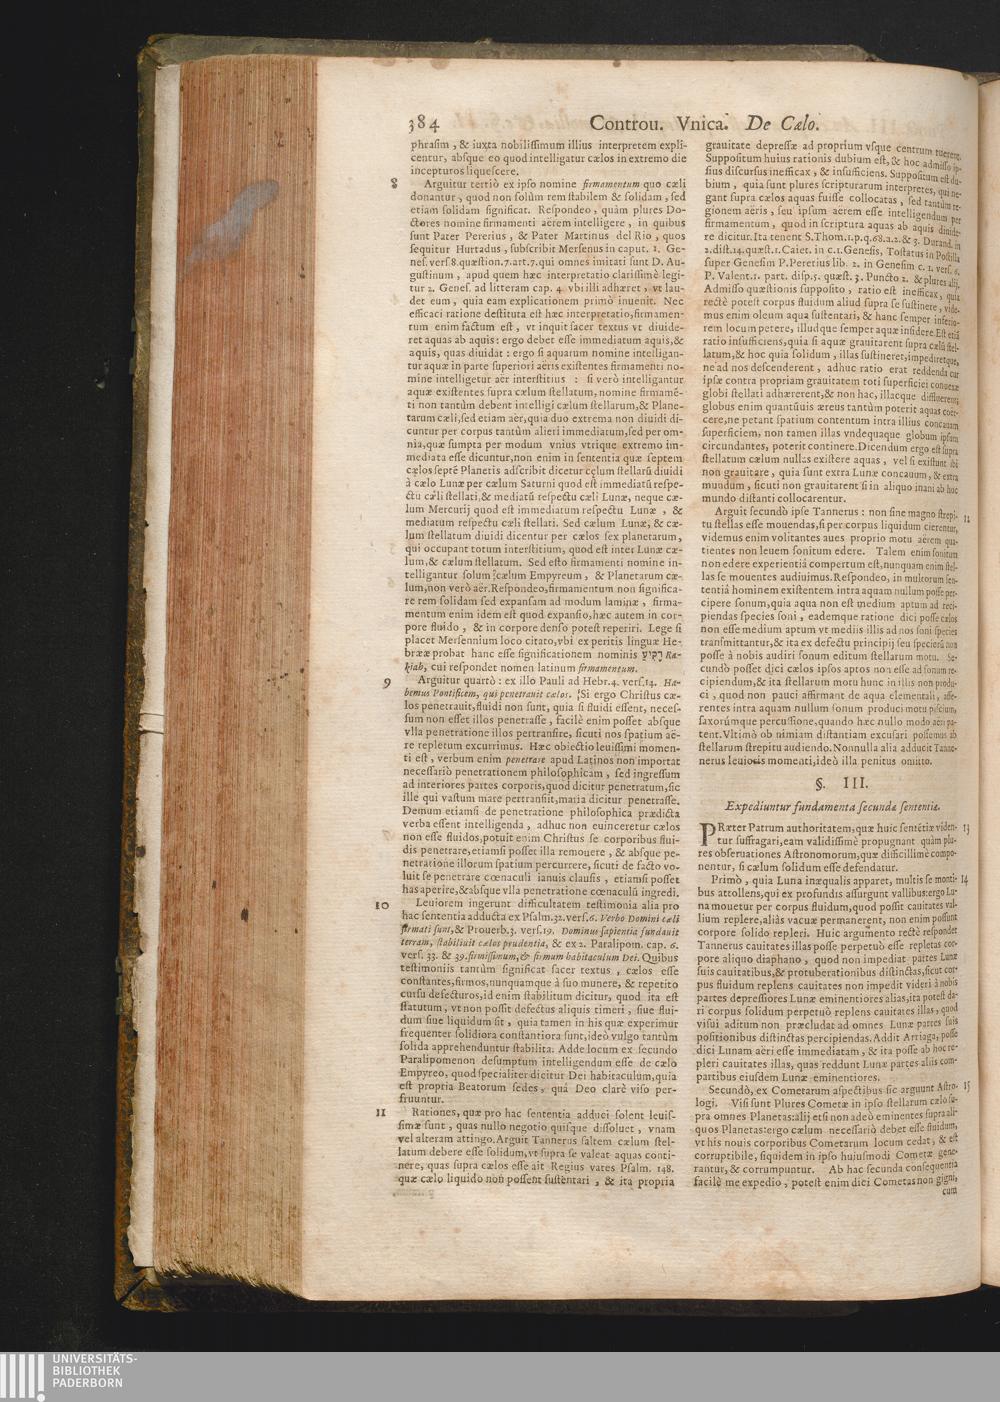 384 Controu. Vnica. De Cælo.
phrasim, & iuxta nobilissimum illius interpretem expli-
centur, absque eo quod intelligatur cælos in extremo die
incepturos liquescere.
8 Arguitur tertiò ex ipso nomine firmamentum quo cæli
donantur, quod non solùm rem stabilem & solidam, sed
etiam solidam significat. Respondeo, quàm plures Do-
ctores nomine firmamenti aërem intelligere, in quibus
sunt Pater Pererius, & Pater Martinus del Rio, quos
sequitur Hurtadus, subscribit Mersenus in caput. 1. Ge-
nes. vers. 8. quæstion. 7. art. 7. qui omnes imitati sunt D. Au-
gustinum, apud quem hæc interpretatio clarissimè legi-
tur 2. Genes. ad litteram cap. 4. vbi illi adhæret, vt lau-
det eum, quia eam explicationem primò inuenit. Nec
efficaci ratione destituta est hæc interpretatio, firmamen-
tum enim factum est, vt inquit sacer textus vt diuide-
ret aquas ab aquis: ergo debet esse immediatum aquis, &
aquis, quas diuidat: ergo si aquarum nomine intelligan-
tur aquæ in parte superiori aëris existentes firmamenti no-
mine intelligetur aër interstitius: si verò intelligantur
aquæ existentes supra cælum stellatum, nomine firmamē-
ti non tantùm debent intelligi cælum stellarum, & Plane-
tarum cæli, sed etiam aër, quia duo extrema non diuidi di-
cuntur per corpus tantùm alteri immediatum, sed per om-
nia, quæ sumpta per modum vnius vtrique extremo im-
mediata esse dicuntur, non enim in sententia quæ septem
cælos septē Planetis adscribit dicetur cęlum stellarū diuidi
à cælo Lunæ per cælum Saturni quod est immediatū respe-
ctu cæli stellati, & mediatū respectu cæli Lunæ, neque cæ-
lum Mercurij quod est immediatum respectu Lunæ, &
mediatum respectu cæli stellati. Sed cælum Lunæ, & cæ-
lum stellatum diuidi dicentur per cælos sex planetarum,
qui occupant totum interstitium, quod est inter Lunæ cæ-
lum, & cælum stellatum. Sed esto firmamenti nomine in-
telligantur solum cælum Empyreum, & Planetarum cæ-
lum, non verò aër. Respondeo, firmamentum non significa-
re rem solidam sed expansam ad modum laminæ, firma-
mentum enim idem est quod expansio, hæc autem in cor-
pore fluido, & in corpore denso potest reperiri. Lege si
placet Mersennium loco citato, vbi ex peritis linguæ He-
brææ probat hanc esse significationem nominis רקיע Ra-
kiah, cui respondet nomen latinum firmamentum.
9 Arguitur quartò: ex illo Pauli ad Hebr. 4. vers. 14. Ha-
bemus Pontificem, qui penetrauit cælos. Si ergo Christus cæ-
los penetrauit, fluidi non sunt, quia si fluidi essent, neces-
sum non esset illos penetrasse, facilè enim posset absque
vlla penetratione illos pertransire, sicuti nos spatium aë-
re repletum excurrimus. Hæc obiectio leuissimi momen-
ti est, verbum enim penetrare apud Latinos non importat
necessariò penetrationem philosophicam, sed ingressum
ad interiores partes corporis, quod dicitur penetratum, sic
ille qui vastum mare pertransiit, maria dicitur penetrasse.
Demum etiamsi de penetratione philosophica prædicta
verba essent intelligenda, adhuc non euinceretur cælos
non esse fluidos, potuit enim Christus se corporibus flui-
dis penetrare, etiamsi posset illa remouere, & absque pe-
netratione illorum spatium percurrere, sicuti de facto vo-
luit se penetrare cœnaculi ianuis clausis, etiamsi posset
has aperire, & absque vlla penetratione cœnaculū ingredi.
10 Leuiorem ingerunt difficultatem testimonia alia pro
hac sententia adducta ex Psalm. 32. vers. 6. Verbo Domini cæli
firmati sunt, & Prouerb. 3. vers. 19. Dominus sapientia fundauit
terram, stabiliuit cælos prudentia, & ex 2. Paralipom. cap. 6.
vers. 33. & 39. firmissimum, & firmum habitaculum Dei. Quibus
testimoniis tantùm significat sacer textus, cælos esse
constantes, firmos, nunquamque à suo munere, & repetito
cursu defecturos, id enim stabilitum dicitur, quod ita est
statutum, vt non possit defectus aliquis timeri, siue flui-
dum siue liquidum sit, quia tamen in his quæ experimur
frequenter solidiora constantiora sunt, ideò vulgo tantùm
solida apprehenduntur stabilita. Adde locum ex secundo
Paralipomenon desumptum intelligendum esse de cælo
Empyreo, quod specialiter dicitur Dei habitaculum, quia
est propria Beatorum sedes, quâ Deo clarè viso per-
fruuntur.
11 Rationes, quæ pro hac sententia adduci solent leuis-
simæ sunt, quas nullo negotio quisque dissoluet, vnam
vel alteram attingo. Arguit Tannerus saltem cælum stel-
latum debere esse solidum, vt supra se valeat aquas conti-
nere, quas supra cælos esse ait Regius vates Psalm. 148.
quæ cælo liquido non possent sustentari, & ita propria
grauitate depressæ ad proprium vsque centrum tuerent.
Suppositum huius rationis dubium est, & hoc admisso ip-
sius discursus inefficax, & insufficiens. Suppositum est du-
bium, quia sunt plures scripturarum interpretes, qui ne-
gant supra cælos aquas fuisse collocatas, sed tantùm re-
gionem aëris, seu ipsum aërem esse intelligendum per
firmamentum, quod in scriptura aquas ab aquis diuide-
re dicitur. Ita tenent S. Thom. 1. p. q. 68. a. 2. & 3. Durand. in
2. dist. 14. quæst. 1. Caiet. in c. 1. Genesis, Tostatus in Postilla
super Genesim P. Pererius lib. 2. in Genesim c. 1. vers. 6.
P. Valent. 1. part. disp. 5. quæst. 3. Puncto 2. & plures alij.
Admisso quæstionis supposito, ratio est inefficax, quia
rectè potest corpus fluidum aliud supra se sustinere, vide-
mus enim oleum aqua sustentari, & hanc semper inferio-
rem locum petere, illudque semper aquæ insidere. Est etiā
ratio insufficiens, quia si aquæ grauitarent supra cælū stel-
latum, & hoc quia solidum, illas sustineret, impediretque,
ne ad nos descenderent, adhuc ratio erat reddenda cur
ipsæ contra propriam grauitatem toti superficiei conuexæ
globi stellati adhærerent, & non hac, illacque diffluerent;
globus enim quantùuis æreus tantùm poterit aquas coër-
cere, ne petant spatium contentum intra illius concauam
superficiem, non tamen illas vndequaque globum ipsum
circundantes, poterit continere. Dicendum ergo est supra
stellatum cælum nullas existere aquas, vel si existunt ibi
non grauitare, quia sunt extra Lunæ concauum, & extra
mundum, sicuti non grauitarent si in aliquo inani ab huc
mundo distanti collocarentur.
Arguit secundò ipse Tannerus: non sine magno strepi- 12
tu stellas esse mouendas, si per corpus liquidum cierentur,
videmus enim volitantes aues proprio motu aërem qua-
tientes non leuem sonitum edere. Talem enim sonitum
non edere experientiâ compertum est, nunquam enim stel-
las se mouentes audiuimus. Respondeo, in multorum sen-
tentiâ hominem existentem intra aquam nullum posse per-
cipere sonum, quia aqua non est medium aptum ad reci-
piendas species soni, eademque ratione dici posse cælos
non esse medium aptum vt mediis illis ad nos soni species
transmittantur, & ita ex defectu principij seu specierū non
posse à nobis audiri sonum editum stellarum motu. Se-
cundò posset dici cælos ipsos aptos non esse ad sonum re-
cipiendum, & ita stellarum motu hunc in illis non produ-
ci, quod non pauci affirmant de aqua elementali, asse-
rentes intra aquam nullum sonum produci motu piscium,
saxorúmque percussione, quando hæc nullo modo aëri pa-
tent. Vltimò ob nimiam distantiam excusari possemus ab
stellarum strepitu audiendo. Nonnulla alia adducit Tanne-
nerus leuioris momenti, ideò illa penitus omitto.
§. III.
Expediuntur fundamenta secundæ sententiæ.
PRæter Patrum authoritatem, quæ huic sentētiæ viden- 13
tur suffragari, eam validissimè propugnant quàm plu-
res obseruationes Astronomorum, quæ difficillimè compo-
nentur, si cælum solidum esse defendatur.
Primò, quia Luna inæqualis apparet, multis se monti- 14
bus attollens, qui ex profundis assurgunt vallibus: ergo Lu-
na mouetur per corpus fluidum, quod possit cauitates val-
lium replere, aliàs vacuæ permanerent, non enim possunt
corpore solido repleri. Huic argumento rectè respondet
Tannerus cauitates illas posse perpetuò esse repletas cor-
pore aliquo diaphano, quod non impediat partes Lunæ
suis cauitatibus, & protuberationibus distinctas, sicut cor-
pus fluidum replens cauitates non impedit videri à nobis
partes depressiores Lunæ eminentiores alias, ita potest da-
ri corpus solidum perpetuò replens cauitates illas, quod
visui aditum non præcludat ad omnes Lunæ partes suis
positionibus distinctas percipiendas. Addit Arriaga, posse
dici Lunam aëri esse immediatam, & ita posse ab hoc re-
pleri cauitates illas, quas reddunt Lunæ partes aliis com-
partibus eiusdem Lunæ eminentiores.
Secundò, ex Cometarum aspectibus sic arguunt Astro- 15
logi. Visi sunt Plures Cometæ in ipso stellarum cælo su-
pra omnes Planetas: alij etsi non adeò eminentes supra ali-
quos Planetas: ergo cælum necessariò debet esse fluidum,
vt his nouis corporibus Cometarum locum cedat, & est
corruptibile, siquidem in ipso huiusmodi Cometæ gene-
rantur, & corrumpuntur. Ab hac secunda consequentia
facilè me expedio, potest enim dici Cometas non gigni,
cum
UNIVERSITÄTS-
BIBLIOTHEK
PADERBORN